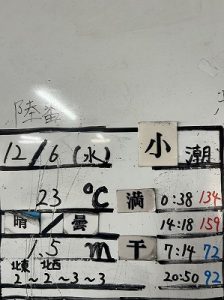 陸蛮
12/6(水) 小潮
23℃ 満 0:38 134
晴/曇 14:18 159
1.5m 干 7:14 72
北東 北西 20:50 92
2~2~3~3